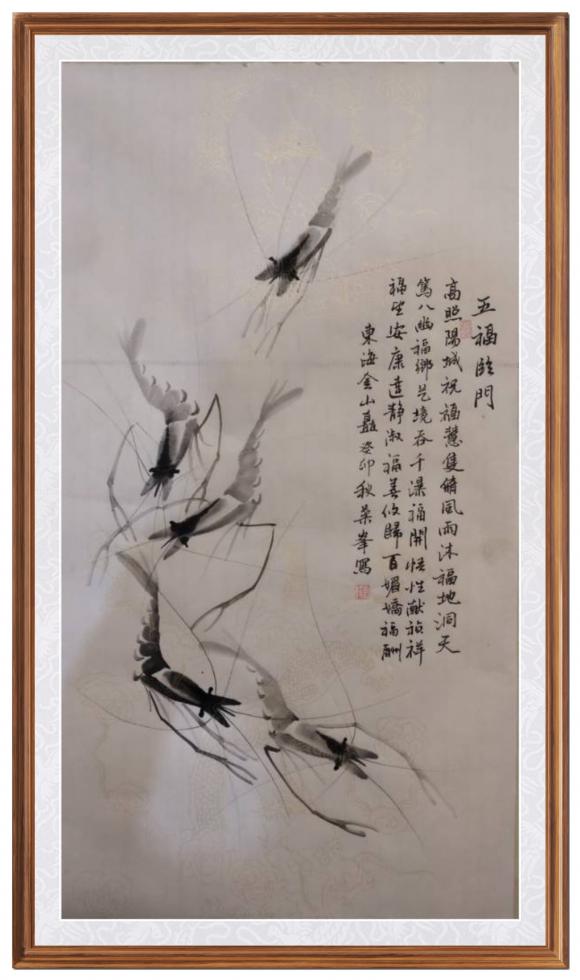 五福臨門
高照陽城祝福慧隻脩風雨沐福地洞天
篤八幽福鄉艺境吞千瀑福開悟性献祯祥
福堂安康達静淑福善攸歸百媚嬌福酬
東海金山嘉癸卯秋葉峯寫